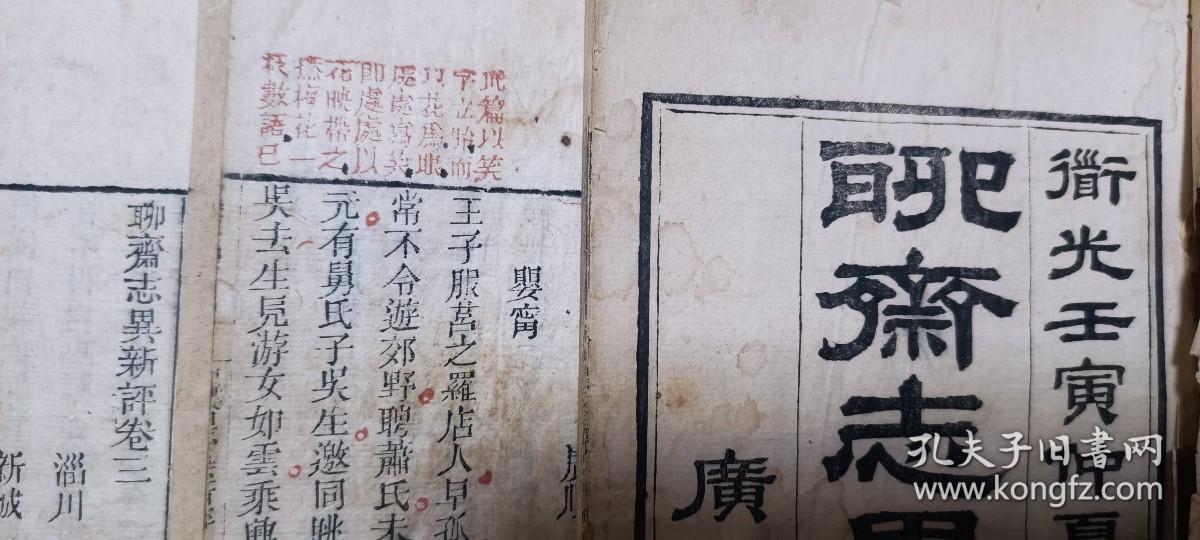 衜光壬寅仲夏
聊齋志異
廣
此篇以笑
字立胎而
以花為眼
處處寫笑
即處處以
花映帶之
撚梅花一
枝數語已
嬰甯
王子服莒之羅店人早孤
常不令遊郊野聘蕭氏未
元有舅氏子吳生邀同眺
吳去生見游女如雲乘興
聊齋志異新評卷三
淄川
新城
孔夫子旧书网
www.kongfz.com